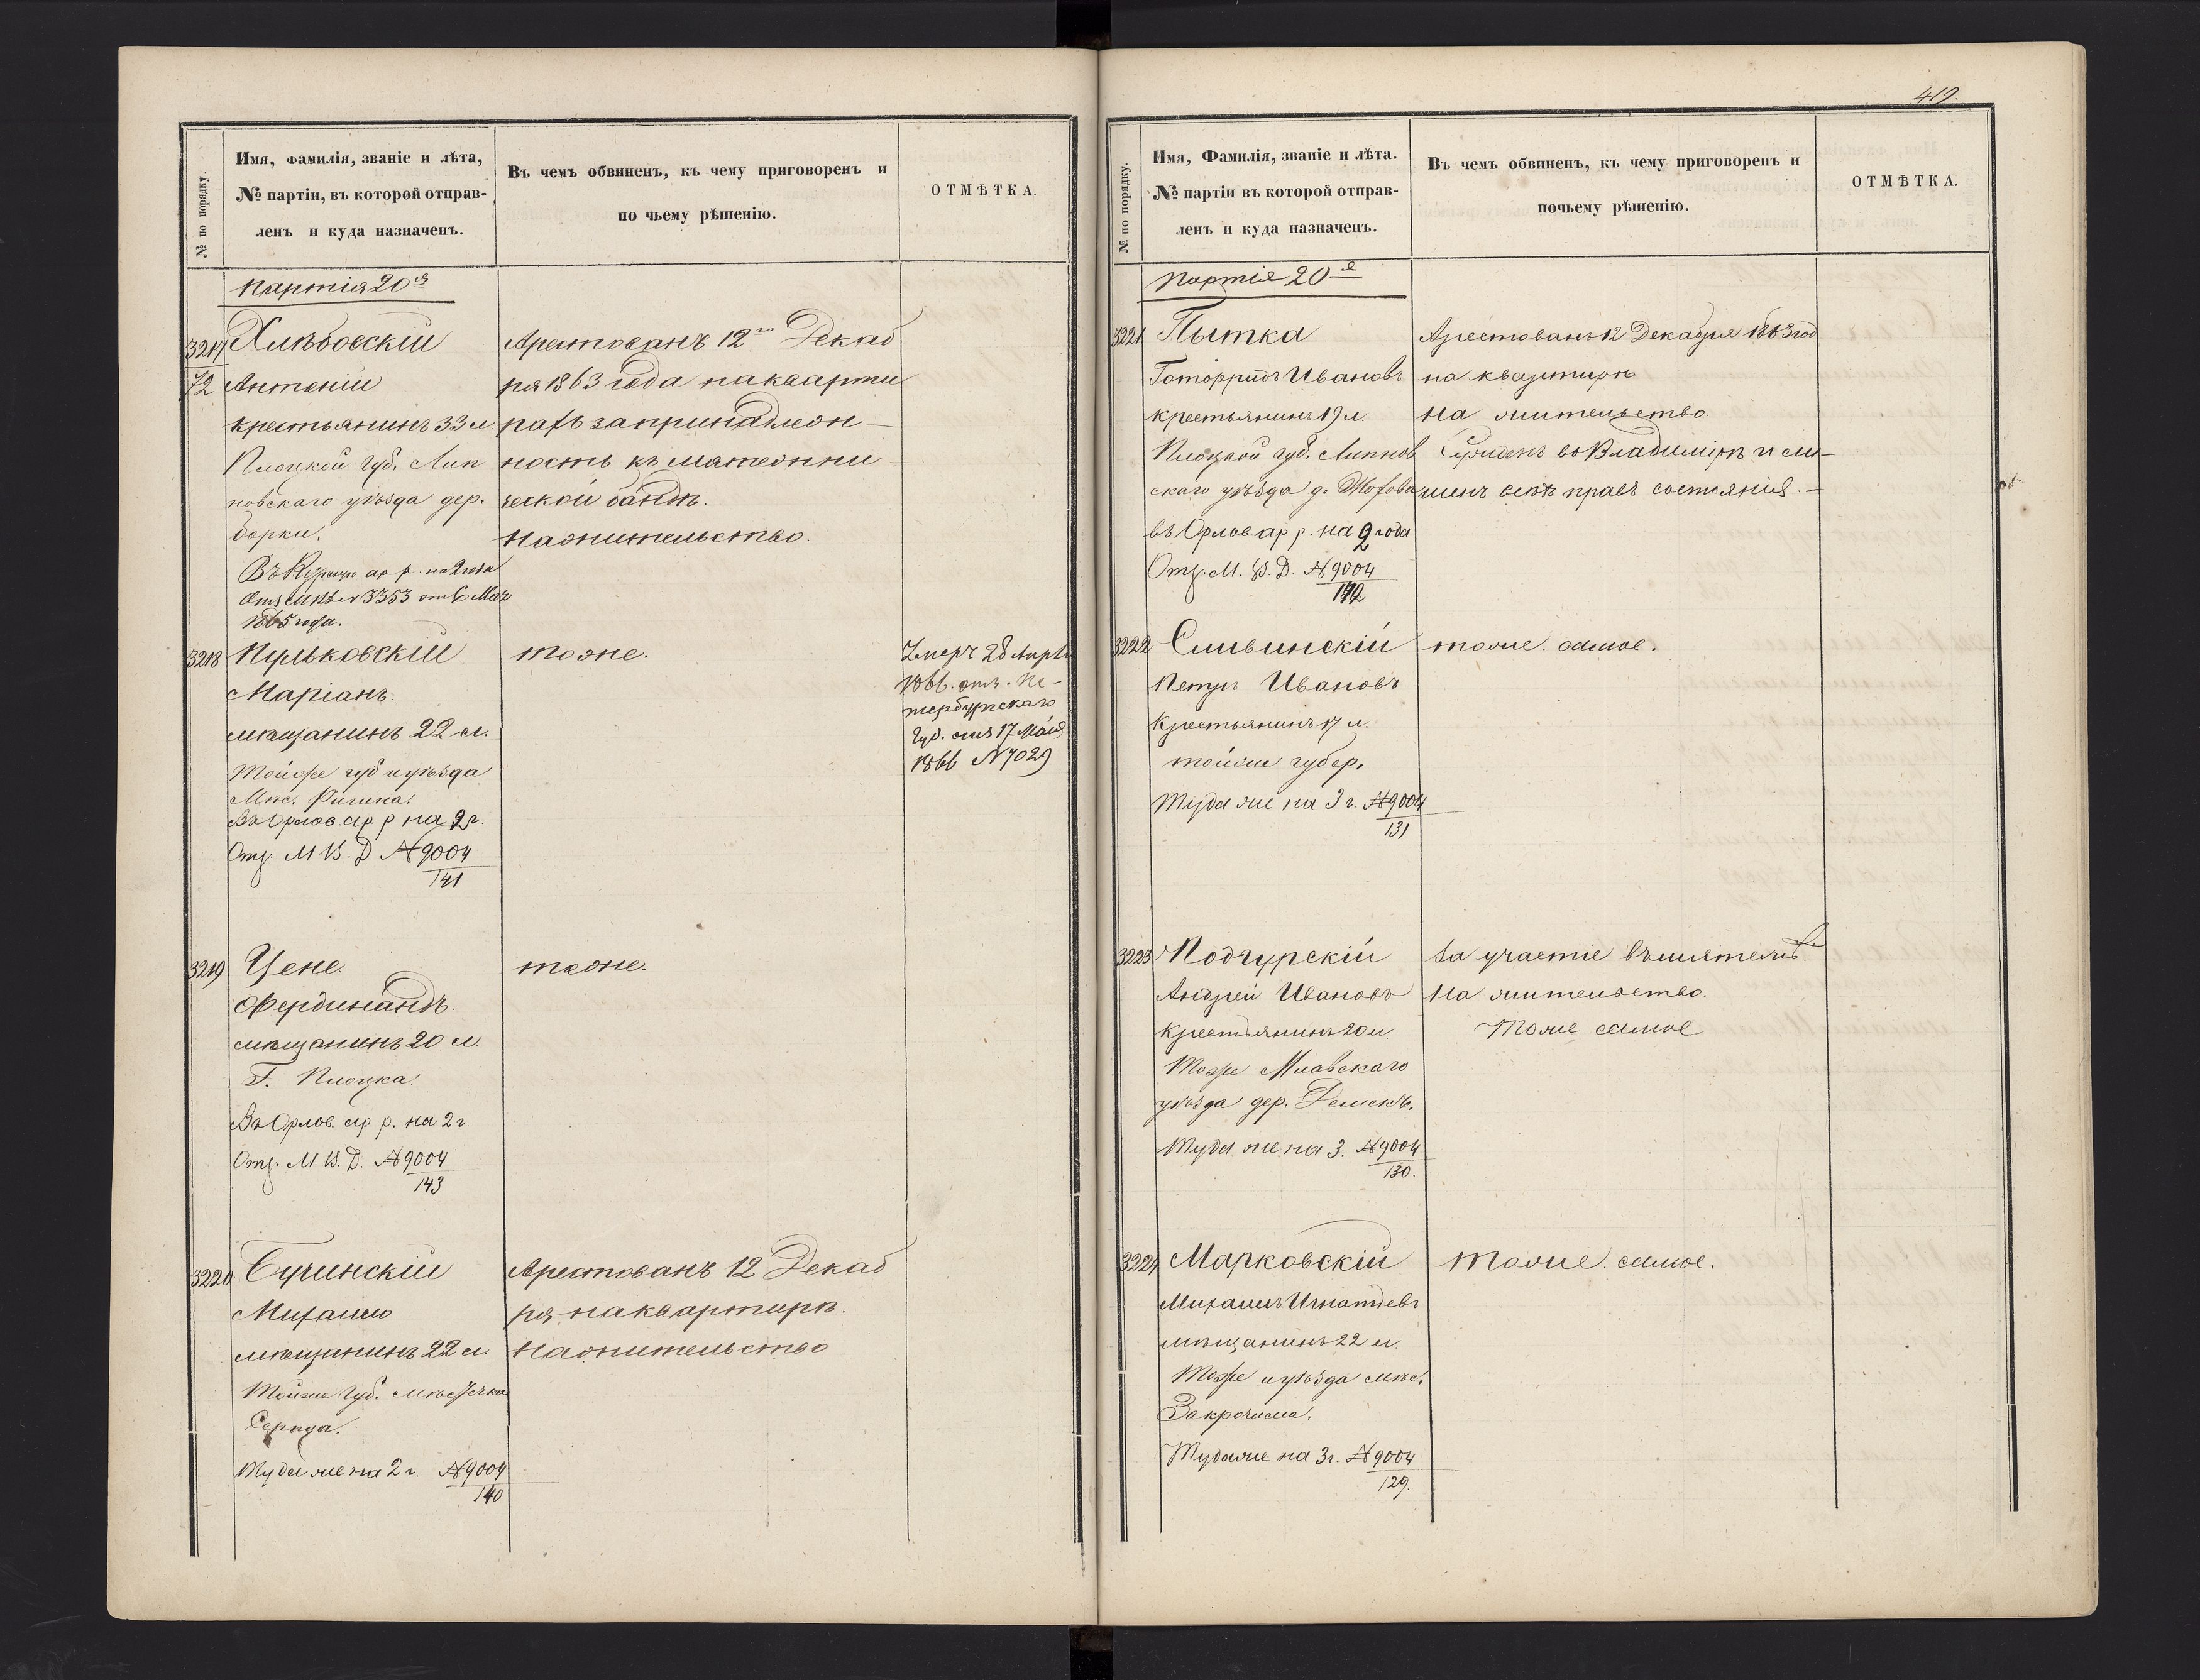 419.
№ по порядку.
Имя, Фамилія, званіе и лѣта,
№ партіи, въ которой отправ-
ленъ и куда назначенъ.
Въ чемъ обвиненъ, къ чему приговоренъ и
по чьему рѣшенію.
ОТМѢТКА.
Партія 20я
3217
72
Хлѣбовскій
Антоній
крестьянинъ 33 л.
Плоцкой губ. Лип
новскаго уѣзда дер.
Борки.
Въ Курскую ар р. на 2 года
1865 года.
Арестованъ 12го Декаб
ря 1863 года на кварти
рахъ за принадлеж-
ность къ мятежни-
ческой бандѣ.
На жительство.
3218
Пульковскій
Маріанъ.
мѣщанинъ 22 л.
Той же губ и уѣзда
Мѣс. Рипина.
Въ Орлов. ар р на 2 г.
Отз. М. В. Д №9004
141
тоже.
Умеръ 28 Апрѣл
1866. отн. Пе-
тербургскаго
Губ. отъ 17 Мая
1866 №7029
3219
Цене.
Фердинандъ.
мѣщанинъ 20 л.
Г. Плоцка.
Въ Орлов. ар р. на 2 г.
Отз. М. В. Д. №9004
143
тоже.
3220
Бучинскій
Михаилъ
мѣщанинъ 22 л.
Той же Губ. мѣстечка
Серпца.
Туда же на 2 г. №9004
140
Арестованъ 12 Декаб
ря на квартирѣ.
На жительство
№ по порядку.
Имя, Фамилія, званіе и лѣта.
№ партіи въ которой отправ-
ленъ и куда назначенъ.
Въ чемъ обвиненъ, къ чему приговоренъ и
почьему рѣшенію.
ОТМѢТКА.
Партія 20я
3221
Пытка
Готфридъ Ивановъ
крестьянинъ 19 л.
Плоцкой губ. Липнов
скаго уѣзда д.
въ Орлов ар р. на 2 года
Отз. М. В. Д. №9004
142
Арестованъ 12 Декабря 1863 год
на квартирѣ
На жительство.
Суженъ во Владимірѣ и ли-
шенъ всѣхъ правъ состоянія.-
3222
Сливинскій
Петръ Ивановъ
Крестьянинъ 17 л.
той же губер.
Туда же на 3 г. №9004
131
тоже самое.
3223
Подгурскій
Андрей Ивановъ
Крестьянинъ 20 л.
Тоже Млавскаго
уѣзда дер.
Туда же на 3. №9004
130.
За участіе въ мятежѣ
На жительство.
Тоже самое
3224
Марковскій
Михаилъ Игнатьевъ
мѣщанинъ 22 л.
Тоже и уѣзда мѣс.
Закрочима.
Туда же на 3 г. №9004
129.
тоже самое.